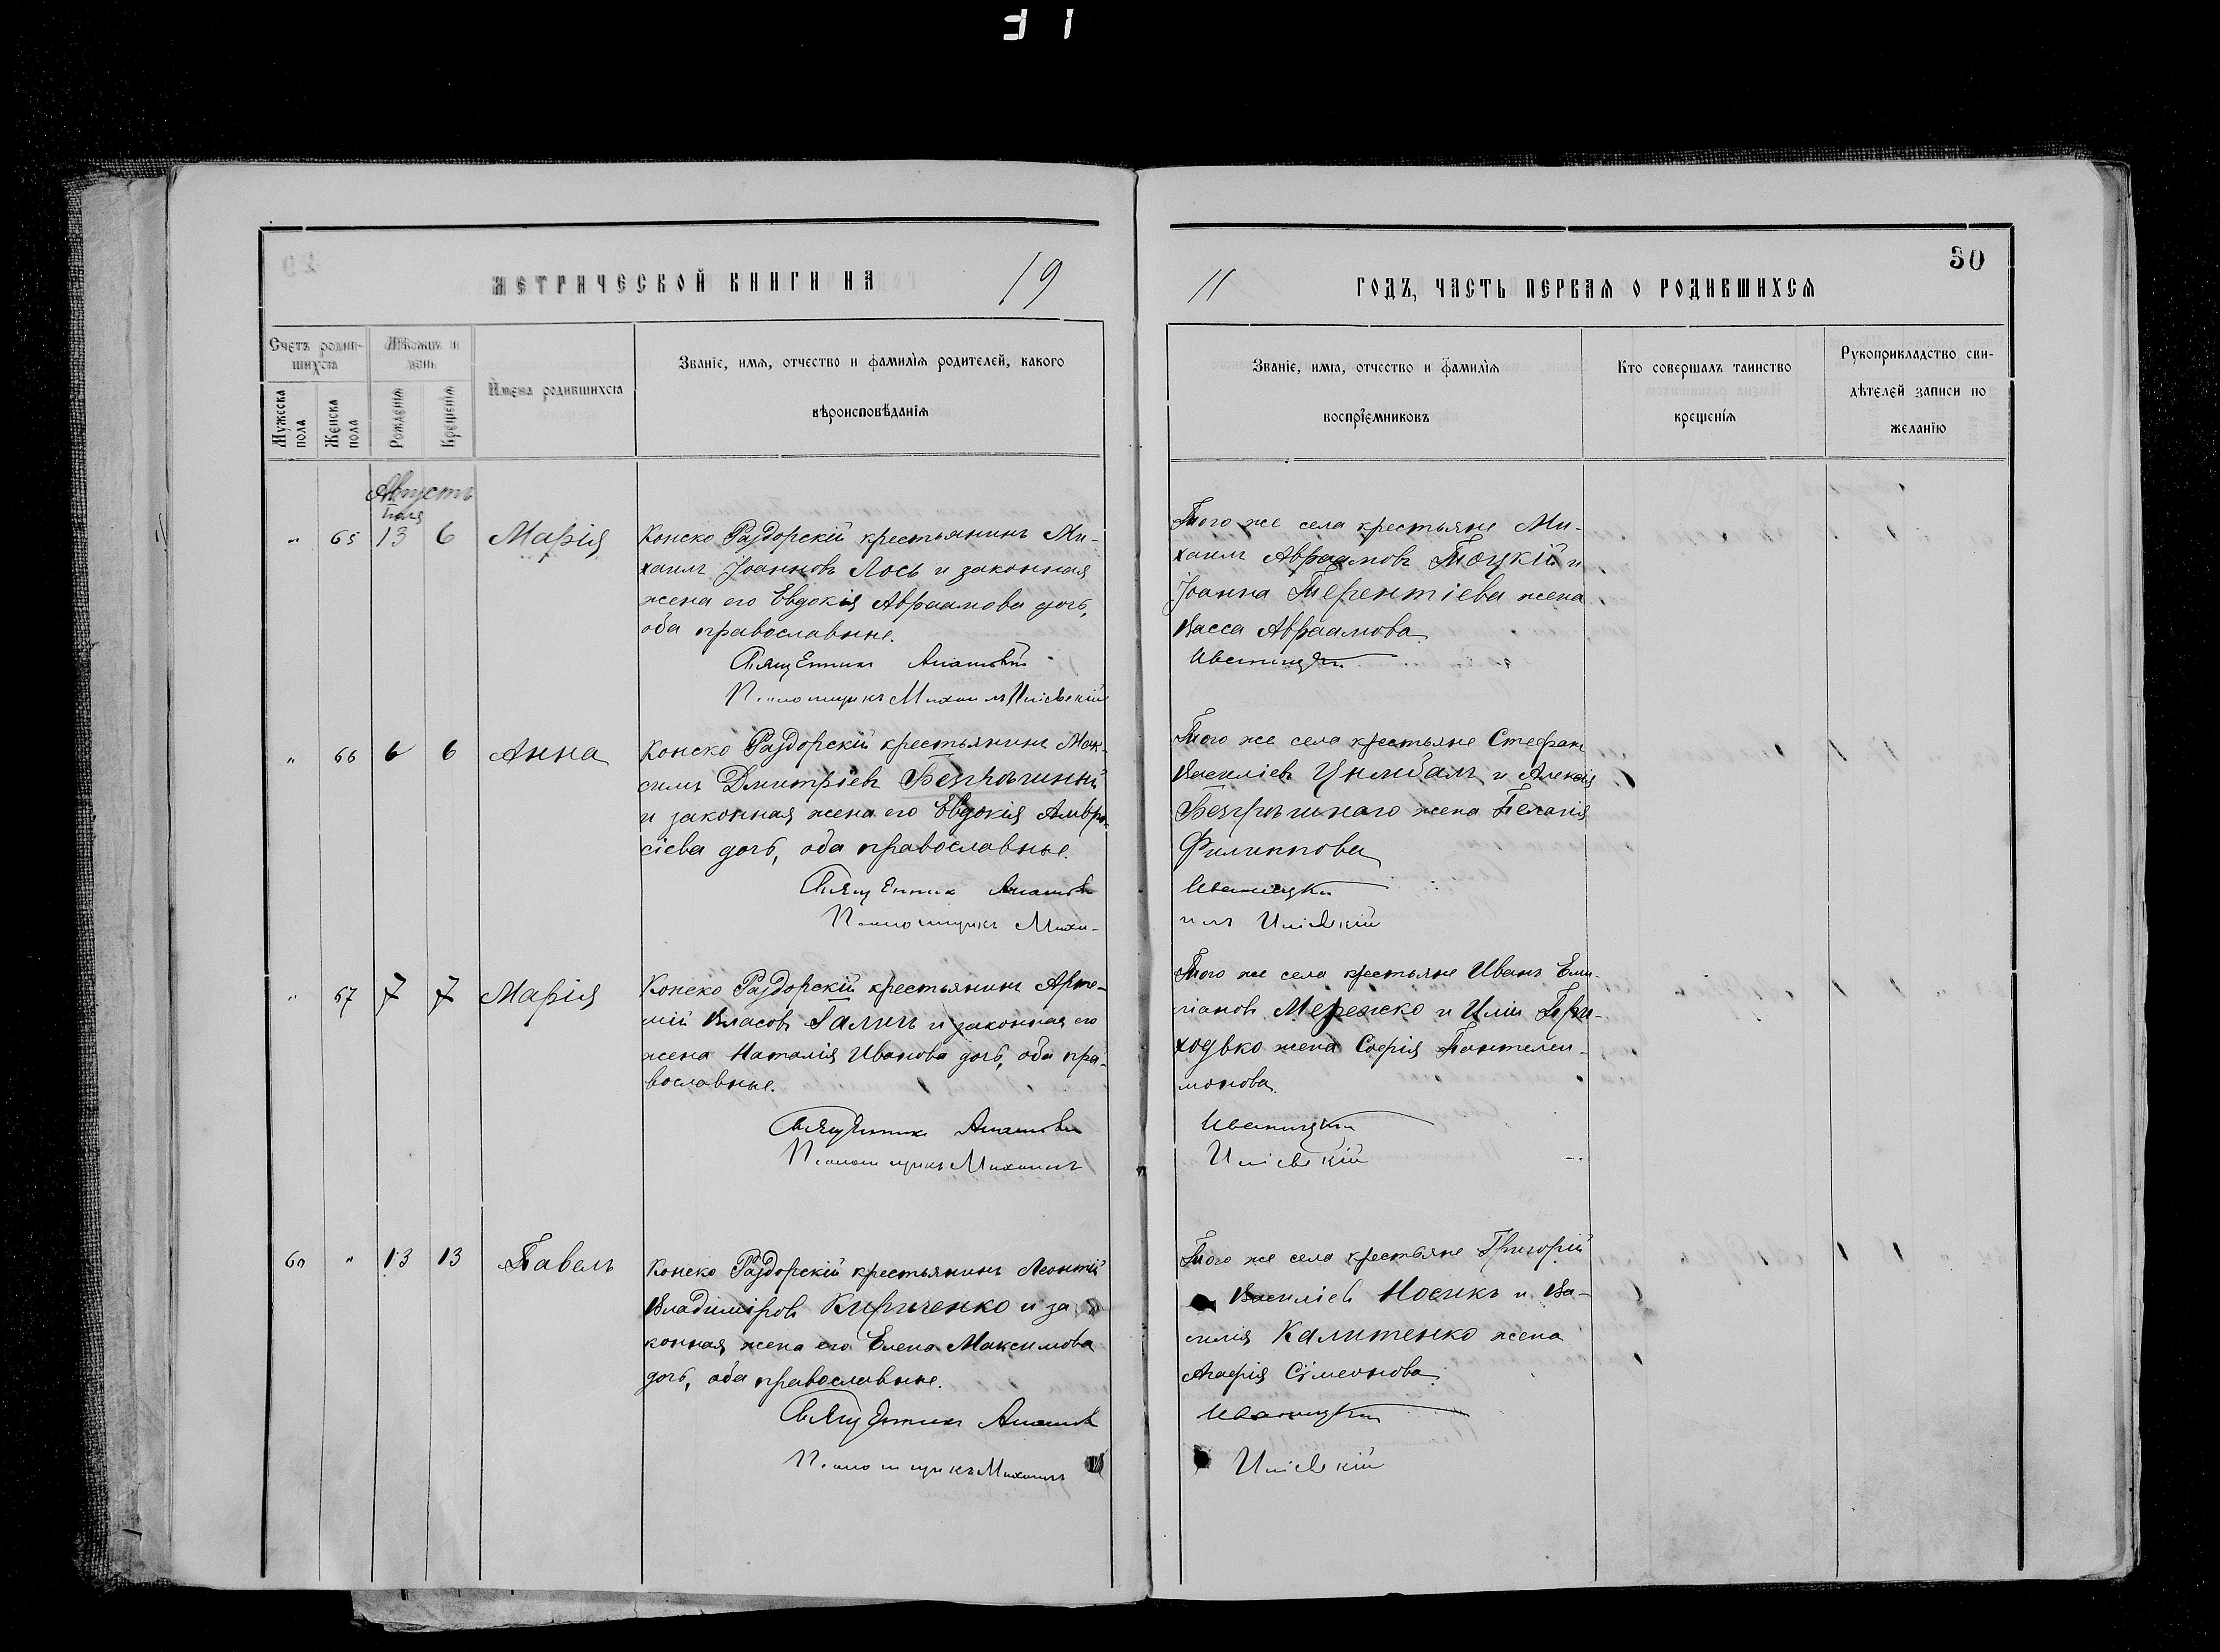 30
МЕТРИЧЕСКОЙ КНИГИ НА 19
11 ГОДЪ, ЧАСТЬ ПЕРВАЯ О РОДИВШИХСЯ
Счетъ родив-
шихся
Мѣсяцъ и
день
Мужеска
пола
Женска
пола
Рожденія
Крещенія
Имена родившихся
Званіе, имя, отчество и фамилія родителей, какого
вѣроисповѣданія
Званіе, имя, отчество и фамилія
воспріемниковъ
Кто совершалъ таинство
крещенія
Рукоприкладство сви-
дѣтелей записи по
желанію
Августъ
Іюля
" 65 13 6 Марія
Конско Раздорскій крестьянинъ Ми-
хаилъ Іоанновъ Лось и законная
жена его Евдокія Авраамова дочь,
оба православные.
Священникъ
Псаломщикъ Михаилъ
Того же села крестьяне Ми-
хаилъ Авраамовъ Тоцкій и
Іоанна Терентіева жена
Васса Авраамова
Иваницкій
" 66 6 6 Анна
Конско Раздорскій крестьянинъ Мак-
симъ Димитріевъ Безгрѣшный
и законная жена его Евдокія Амвро-
сіева дочь, оба православные.
Священникъ
Псаломщикъ Миха-
Того же села крестьяне Стефанъ
Василіевъ Цымбалъ и Алексія
Безгрѣшнаго жена Пелагія
Филиппова
Иваницкій
илъ
" 67 7 7 Марія
Конско Раздорскій крестьянинъ Арте-
мій Власовъ Галичъ и законная его
жена Наталія Иванова дочь, оба пра-
вославные.
Священникъ
Псаломщикъ Михаилъ
Того же села крестьяне Иванъ Еми-
ліановъ Мережко и Иліи При-
ходько жена Софія Пантелеи-
монова.
Иваницкій
" 13 13 Павелъ
Конско Раздорскій крестьянинъ Леонтій
Владиміровъ Кириченко и за
конная жена его Елена Максимова
дочь, оба православные.
Священникъ
Псаломщикъ Михаилъ
Того же села крестьяне Григорій
Василіевъ Носикъ и Ва-
силія Калитенко жена
Агафія Сѵмеонова
Иваницкій